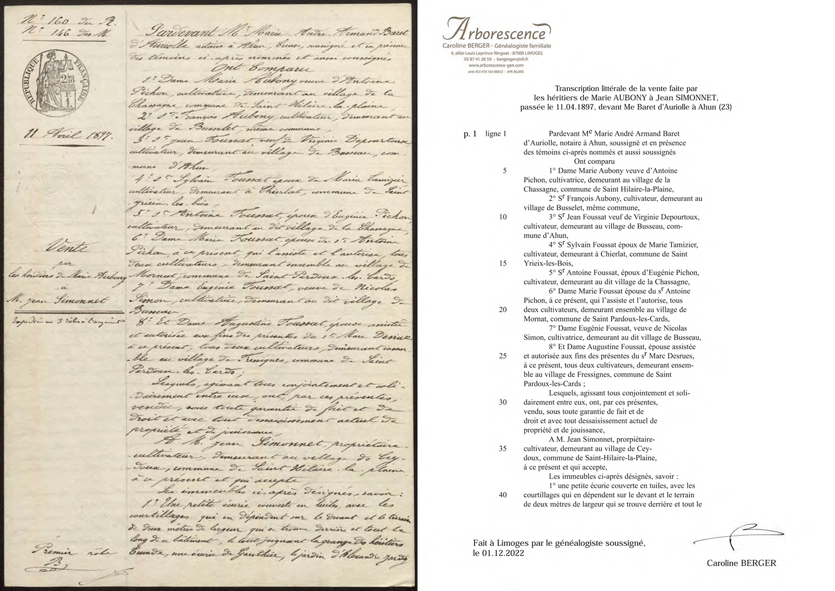 Nº 160 du R.
Nº 146 des M.
RÉPUBLIQUE FRANÇAISE
11 Avril 1897.
Vente
par
les héritiers de Marie Aubony
à
M. Jean Simonnet
Premier rôle
Pardevant Me Marie André Armand Baret
d'Auriolle, notaire à Ahun, soussigné et en présence
des témoins ci-après nommés et aussi soussignés
Ont Comparu
1º Dame Marie Aubony veuve d'Antoine
Pichon, cultivatrice, demeurant au village de la
Chassagne, commune de Saint Hilaire la plaine
2º Sr François Aubony, cultivateur, demeurant au
village de Busselet, même commune,
3º Sr Jean Foussat, veuf de Virginie Depourtoux,
cultivateur, demeurant au village de Busseau, com-
mune d'Ahun
4º Sr Sylvain Foussat époux de Marie Tamizier,
cultivateur, demeurant à Chierlat, commune de Saint
Yrieix les bois,
5º Sr Antoine Foussat, époux d'Eugénie Pichon,
cultivateur, demeurant au dit village de la Chassagne,
6º Dame Marie Foussat épouse du sr Antoine
Pichon, à ce présent, qui l'assiste et l'autorise, tous
deux cultivateurs, demeurant ensemble au village de
Mornat, commune de Saint Pardoux les Cards,
7º Dame Eugénie Foussat, veuve de Nicolas
Simon, cultivatrice, demeurant au dit village de
Busseau
8º Et Dame Augustine Foussat, épouse assistée
et autorisée aux fins des présentes du sr Marc Desrues
à ce présent, tous deux cultivateurs, demeurant ensem-
ble au village de Fressignes, commune de Saint
Pardoux les Cards,
Lesquels, agissant tous conjointement et soli-
dairement entre eux, ont, par ces présentes,
vendu, sous toute garantie de fait et de
droit et avec tout dessaisissement actuel de
propriété et de jouissance,
A M. Jean Simonnet, propriétaire-
cultivateur, demeurant au village de Cey-
doux, commune de Saint Hilaire la plaine
à ce présent et qui accepte
Les immeubles ci-après désignés, savoir :
1º Une petite écurie couverte en tuiles, avec les
courtillages qui en dépendent sur le devant et le terrain
de deux mètres de largeur qui se trouve derrière et tout le
long du bâtiment, le tout joignant la grange des héritiers
Arborescence
Caroline BERGER - Généalogiste familiale
4, allée Louis Leprince Ringuet - 87000 LIMOGES
www.arborescence-gen.com
Transcription littérale de la vente faite par
les héritiers de Marie AUBONY à Jean SIMONNET,
passée le 11.04.1897, devant Me Baret d'Auriolle à Ahun (23)
p. 1 ligne 1 Pardevant Me Marie André Armand Baret
d'Auriolle, notaire à Ahun, soussigné et en présence
des témoins ci-après nommés et aussi soussignés
Ont comparu
5 1° Dame Marie Aubony veuve d'Antoine
Pichon, cultivatrice, demeurant au village de la
Chassagne, commune de Saint Hilaire-la-Plaine,
2° Sr François Aubony, cultivateur, demeurant au
village de Busselet, même commune,
10 3° Sr Jean Foussat veuf de Virginie Depourtoux,
cultivateur, demeurant au village de Busseau, com-
mune d'Ahun,
4° Sr Sylvain Foussat époux de Marie Tamizier,
cultivateur, demeurant à Chierlat, commune de Saint
15 Yrieix-les-Bois,
5° Sr Antoine Foussat, époux d'Eugénie Pichon,
cultivateur, demeurant au dit village de la Chassagne,
6° Dame Marie Foussat épouse du sr Antoine
Pichon, à ce présent, qui l'assiste et l'autorise, tous
20 deux cultivateurs, demeurant ensemble au village de
Mornat, commune de Saint Pardoux-les-Cards,
7° Dame Eugénie Foussat, veuve de Nicolas
Simon, cultivatrice, demeurant au dit village de Busseau,
8° Et Dame Augustine Foussat, épouse assistée
25 et autorisée aux fins des présentes du sr Marc Desrues,
à ce présent, tous deux cultivateurs, demeurant ensem-
ble au village de Fressignes, commune de Saint
Pardoux-les-Cards ;
Lesquels, agissant tous conjointement et soli-
30 dairement entre eux, ont, par ces présentes,
vendu, sous toute garantie de fait et de
droit et avec tout dessaisissement actuel de
propriété et de jouissance,
A M. Jean Simonnet, propriétaire-
35 cultivateur, demeurant au village de Cey-
doux, commune de Saint-Hilaire-la-Plaine,
à ce présent et qui accepte,
Les immeubles ci-après désignés, savoir :
1° une petite écurie couverte en tuiles, avec les
40 courtillages qui en dépendent sur le devant et le terrain
de deux mètres de largeur qui se trouve derrière et tout le
Fait à Limoges par le généalogiste soussigné,
le 01.12.2022
Caroline BERGER